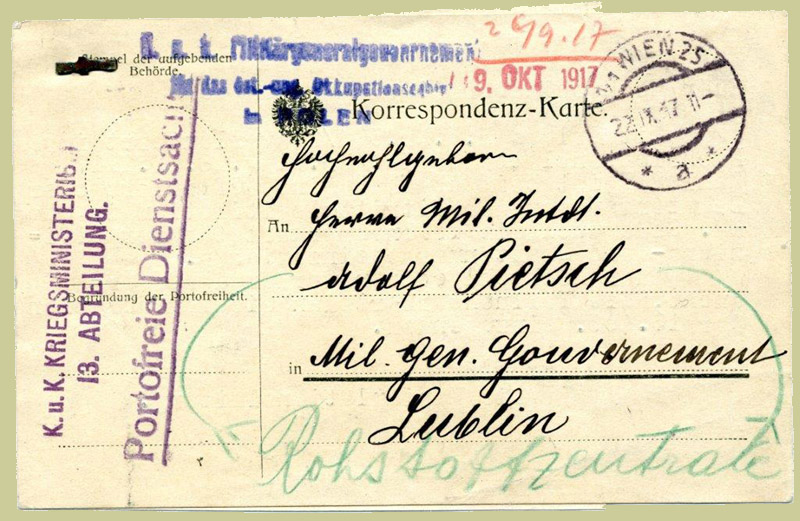 K. u. k. Militärgeneralgouvernement
für das öst.-ung. Okkupationsgebiet
in POLEN
29/9.17
9. OKT 1917
WIEN 25
22.IX.17 11-
* a *
Stempel der aufgebenden
Behörde.
Korrespondenz-Karte.
Hochwohlgeboren
An Herrn Mil. Intdt.
Adolf Pietsch
in Mil. Gen. Gouvernement
Lublin
Rohstoffzentrale
Begründung der Portofreiheit.
K. u. K. KRIEGSMINISTERIUM
13. ABTEILUNG.
Portofreie Dienstsache